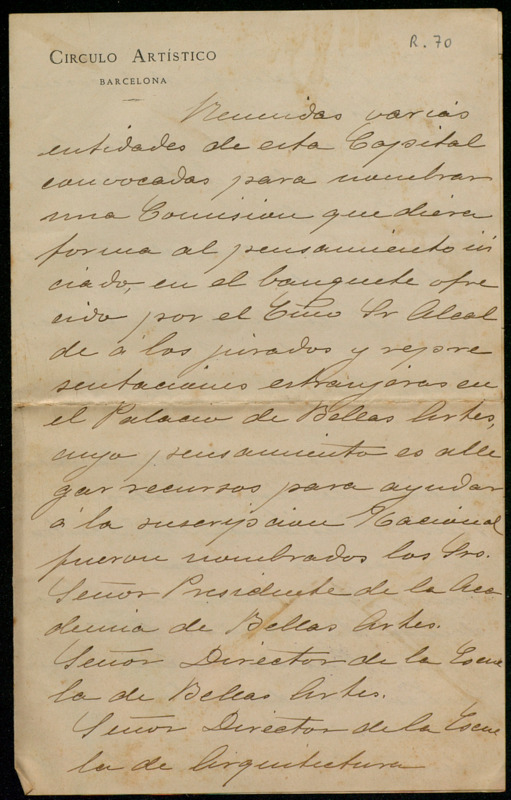 R. 70
CIRCULO ARTÍSTICO
BARCELONA
Reunidas varias
entidades de esta Capital
convocadas para nombrar
una Comision que diera
forma al pensamiento ini
ciado, en el banquete ofre
cido por el Exmo Sr Alcal-
de á los jurados y repre
sentaciones estranjeras en
el Palacio de Bellas Artes,
cuyo pensamiento es alle
gar recursos para ayudar
á la suscripcion Nacional
fueron nombrados los Srs.
Señor Presidente de la Aca
demia de Bellas Artes.
Señor Director de la Escue
la de Bellas Artes.
Señor Director de la Escue
la de Arquitectura